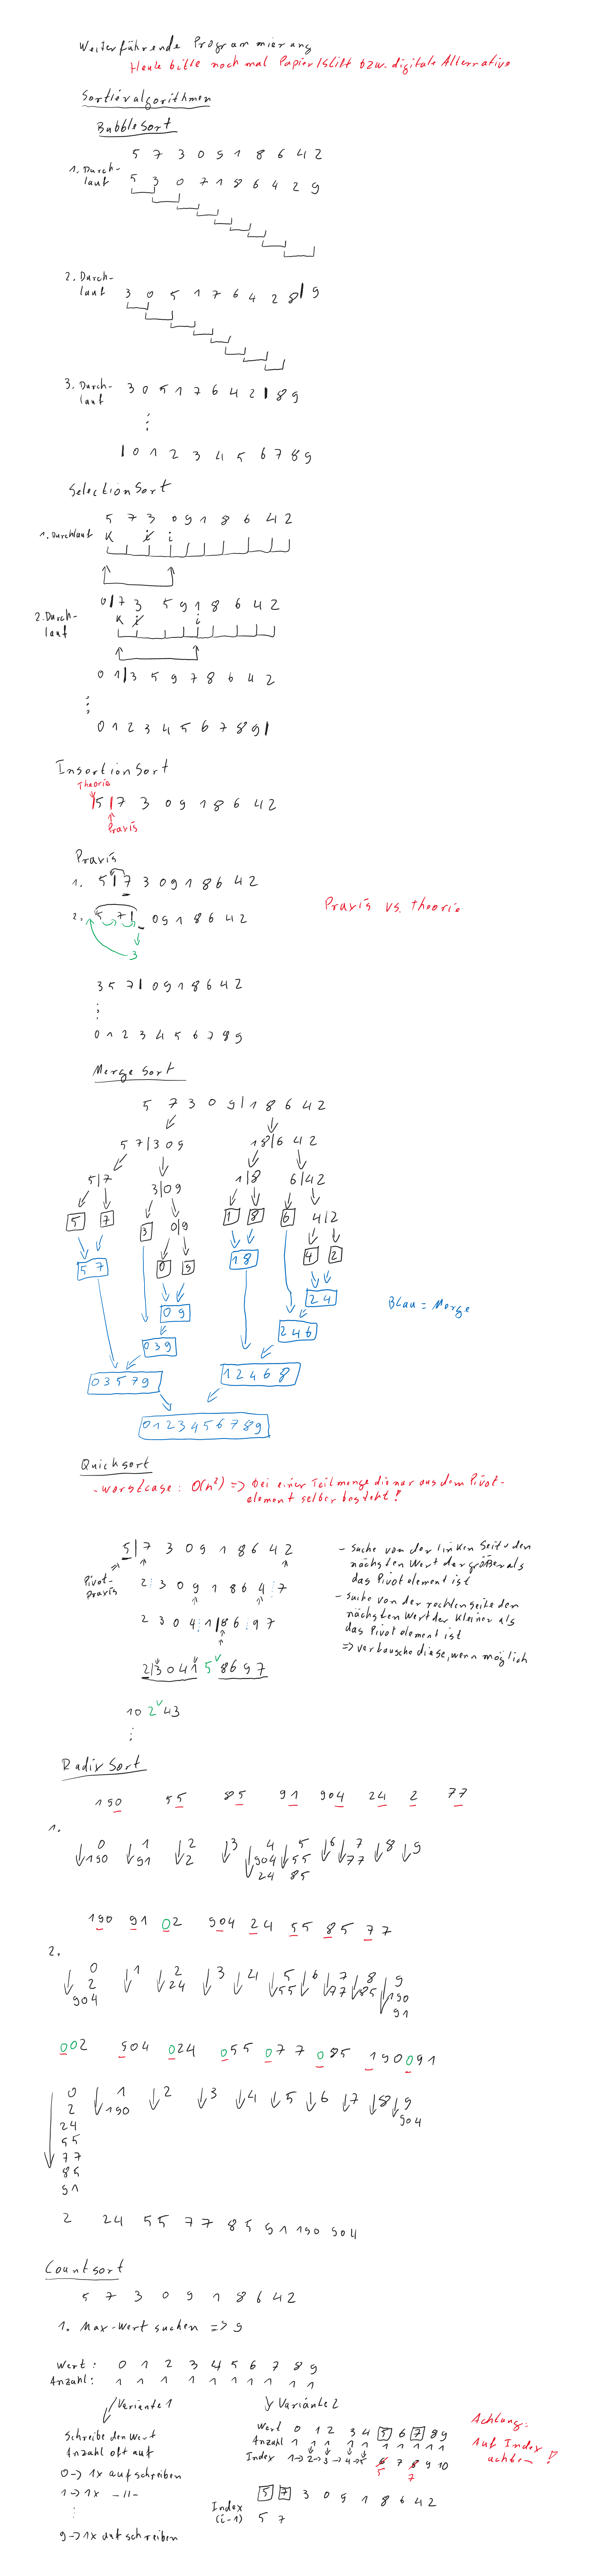 Weiterführende Programmierung
Heute bitte noch mal Papier/Stift bzw. digitale Alternative
Sortieralgorithmen
BubbleSort
5 7 3 0 9 1 8 6 4 2
1. Durch-
lauf 5 3 0 7 1 8 6 4 2 9
2. Durch-
lauf 3 0 5 1 7 6 4 2 8| 9
3. Durch-
lauf 3 0 5 1 7 6 4 2 | 8 9
⋮
| 0 1 2 3 4 5 6 7 8 9
SelectionSort
5 7 3 0 9 1 8 6 4 2
1. Durchlauf k i i
0|7 3 5 9 1 8 6 4 2
2. Durch-
lauf k i i
0 1|3 5 9 7 8 6 4 2
⋮
0 1 2 3 4 5 6 7 8 9|
InsortionSort
Theorie
|5|7 3 0 9 1 8 6 4 2
Praxis
Praxis
1. 5|7 3 0 9 1 8 6 4 2
2. 5 7| _ 0 9 1 8 6 4 2
3
Praxis vs. Theorie
3 5 7| 0 9 1 8 6 4 2
⋮
0 1 2 3 4 5 6 7 8 9
Merge Sort
5 7 3 0 9|1 8 6 4 2
5 7|3 0 9 1 8|6 4 2
5|7 3|0 9 1|8 6|4 2
5 7 3 0|9 1 8 6 4|2
5 7 0 9 1 8 4 2
0 9 2 4
Blau = Merge
0 3 9 2 4 6
0 3 5 7 9 1 2 4 6 8
0 1 2 3 4 5 6 7 8 9
Quicksort
- worstcase: O(n²) => bei einer Teilmenge die nur aus dem Pivot-
element selber besteht!
5|7 3 0 9 1 8 6 4 2
Pivot-
Praxis
2 3 0 9 1 8 6 4 7
2 3 0 4 1|8 6 9 7
2|3 0 4 1 5 8 6 9 7
1 0 2 4 3
⋮
- suche von der linken Seite den
nächsten Wert der größer als
das Pivotelement ist
- suche von der rechten seite den
nächsten Wert der kleiner als
das Pivotelement ist
=> vertausche diese, wenn möglich
Radix Sort
190 55 85 91 904 24 2 77
1.
0 1 2 3 4 5 6 7 8 9
190 91 2 904 55 77
24 85
190 91 02 904 24 55 85 77
2.
0 1 2 3 4 5 6 7 8 9
2 24 55 77 85 190
904 91
002 904 024 055 077 085 190 091
0 1 2 3 4 5 6 7 8 9
2 190 904
24
55
77
85
91
2 24 55 77 85 91 190 904
Countsort
5 7 3 0 9 1 8 6 4 2
1. Max-Wert suchen => 9
Wert: 0 1 2 3 4 5 6 7 8 9
Anzahl: 1 1 1 1 1 1 1 1 1 1
Variante 1
Schreibe den Wert
Anzahl oft auf
0 -> 1x aufschreiben
1 -> 1x -II-
⋮
9 -> 1x aufschreiben
Variante 2
Wert 0 1 2 3 4 5 6 7 8 9
Anzahl 1 1 1 1 1 1 1 1 1 1
Index 1->2->3->4->5 6 7 8 9 10
5 7
5 7 3 0 9 1 8 6 4 2
Index
(i-1) 5 7
Achtung:
Auf Index
achten!